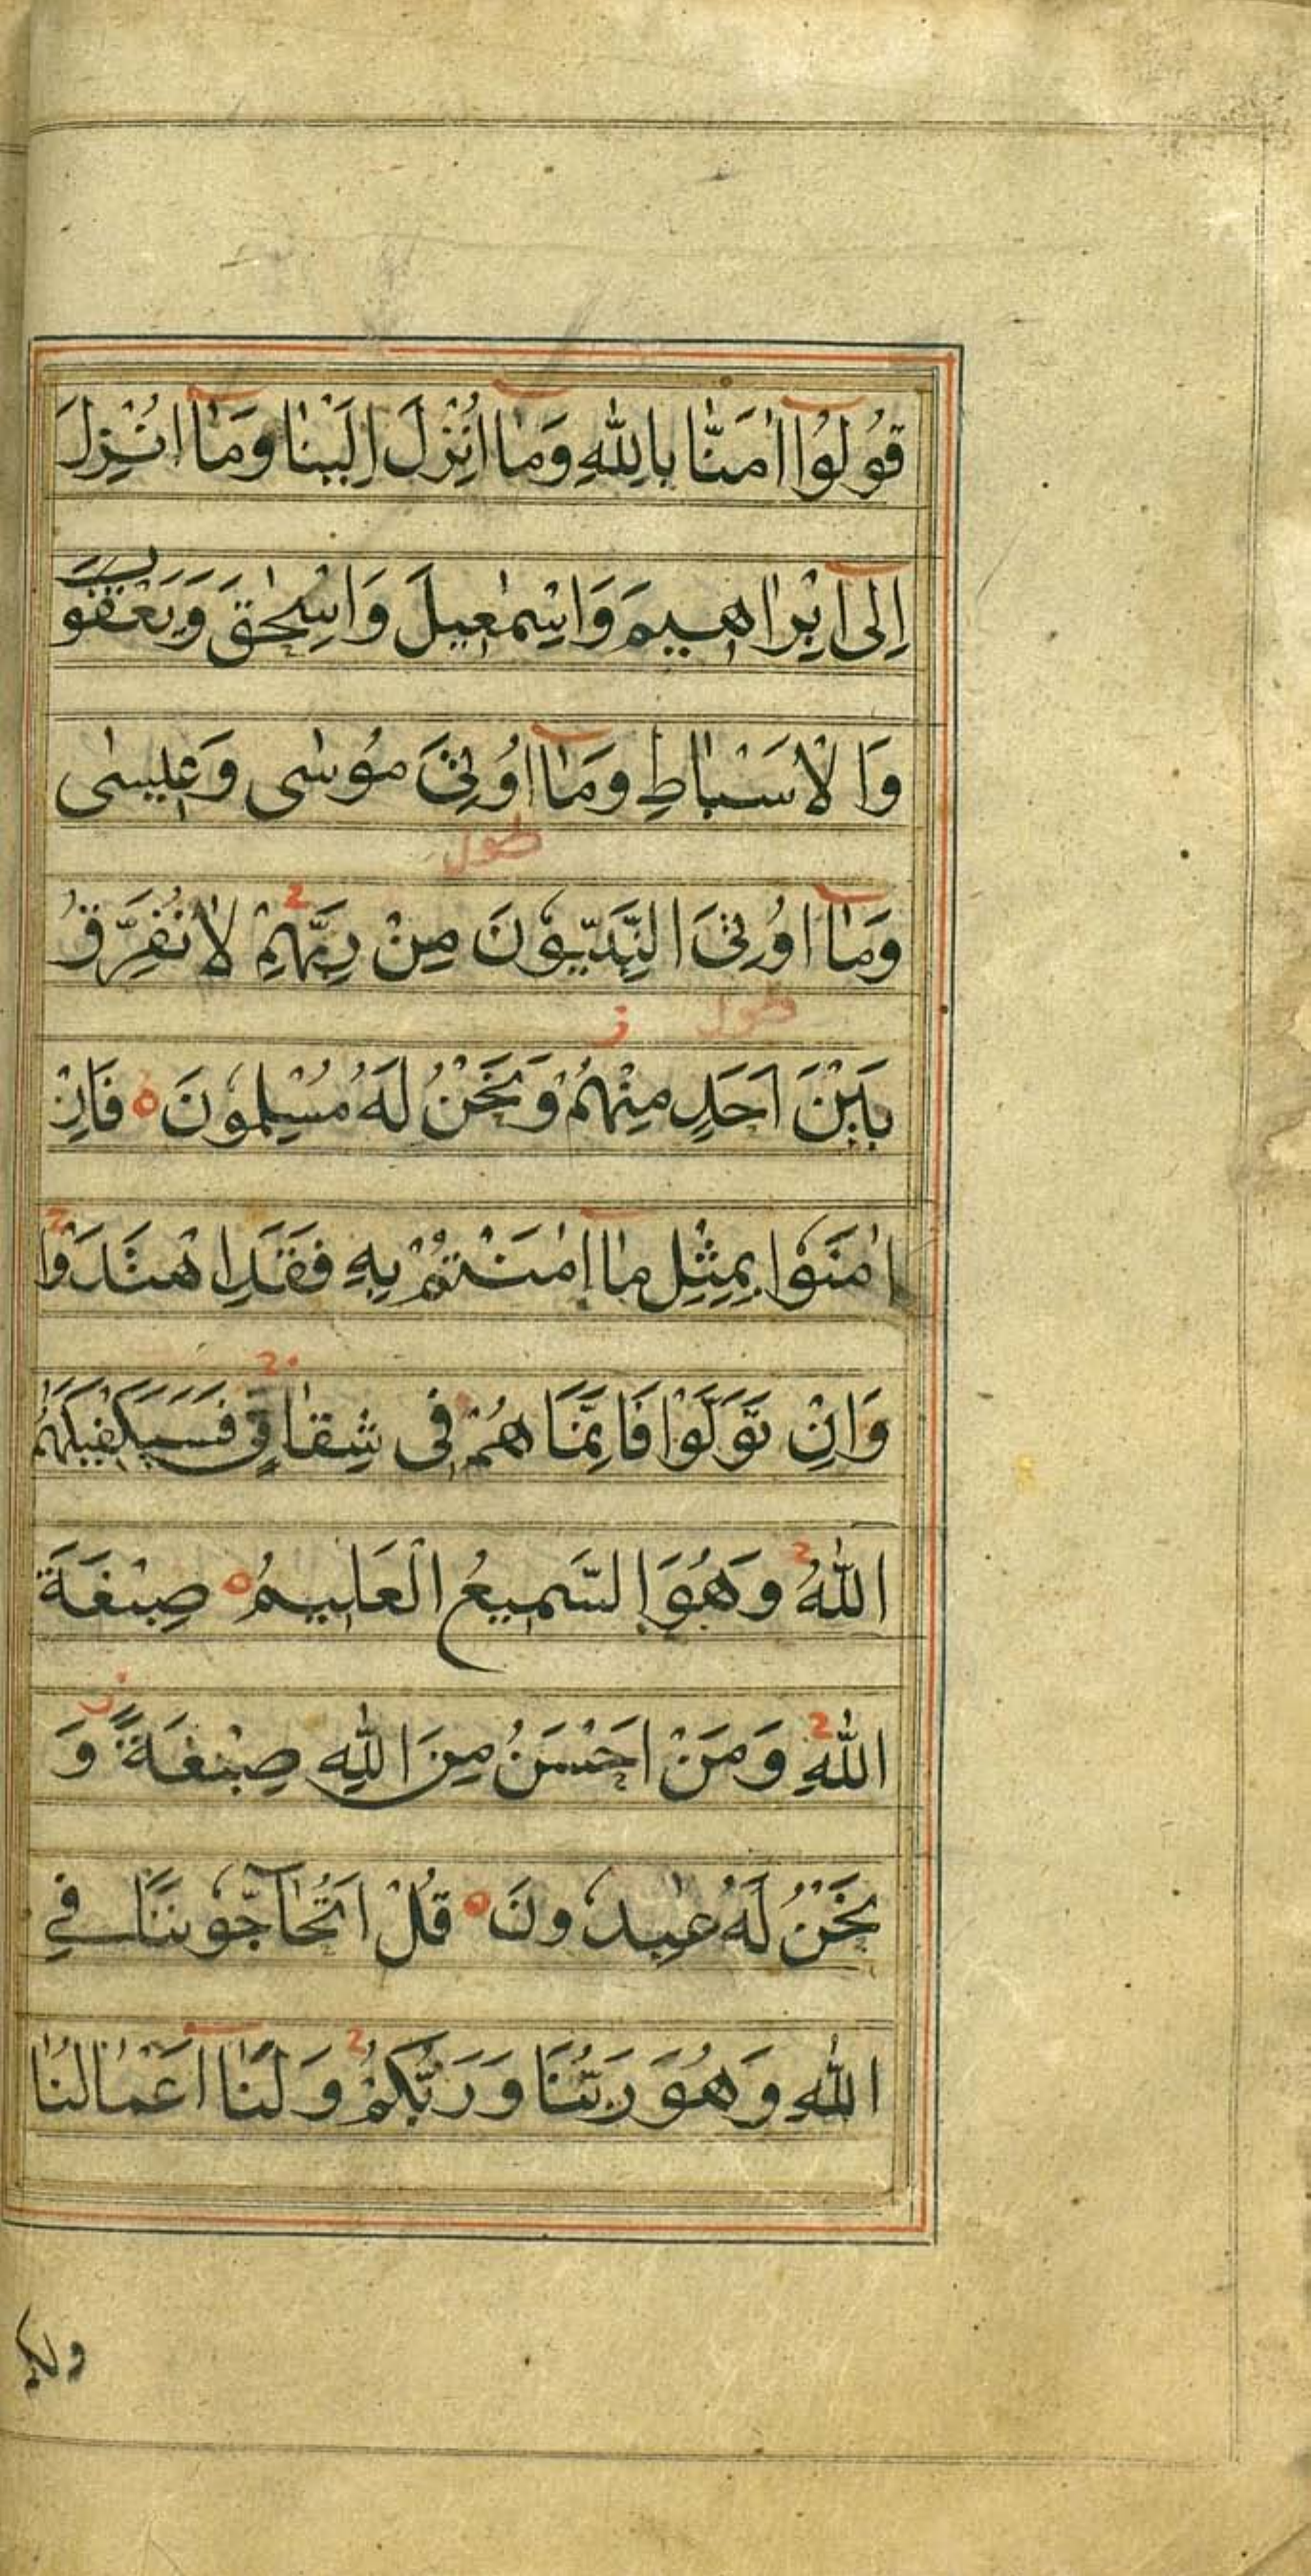 قُولُوا اٰمَنَّا بِاللّٰهِ وَمَاۤ اُنْزِلَ اِلَيْنَا وَمَاۤ اُنْزِلَ
اِلٰۤى اِبْرَاهِيمَ وَاِسْمٰعِيلَ وَاِسْحٰقَ وَيَعْقُوبَ
وَالْاَسْبَاطِ وَمَاۤ اُوْتِىَ مُوْسٰى وَعِيسٰى
طول
وَمَاۤ اُوْتِىَ النَّبِيُّوْنَ مِنْ رَبِّهِمْ لَا نُفَرِّقُ
طول ز
بَيْنَ اَحَدٍ مِنْهُمْ وَنَحْنُ لَهُ مُسْلِمُوْنَ ه فَاِنْ
اٰمَنُوْا بِمِثْلِ مَا اٰمَنْتُمْ بِهِ فَقَدِ اهْتَدَوْا
وَاِنْ تَوَلَّوْا فَاِنَّمَا هُمْ فِى شِقَاقٍ فَسَيَكْفِيكَهُمُ
اللّٰهُ وَهُوَ السَّمِيعُ الْعَلِيمُ ه صِبْغَةَ
اللّٰهِ وَمَنْ اَحْسَنُ مِنَ اللّٰهِ صِبْغَةً وَ
نَحْنُ لَهُ عٰبِدُوْنَ ه قُلْ اَتُحَاۤجُّوْنَنَا فِي
اللّٰهِ وَهُوَ رَبُّنَا وَرَبُّكُمْ وَلَنَاۤ اَعْمَالُنَا
ولكم